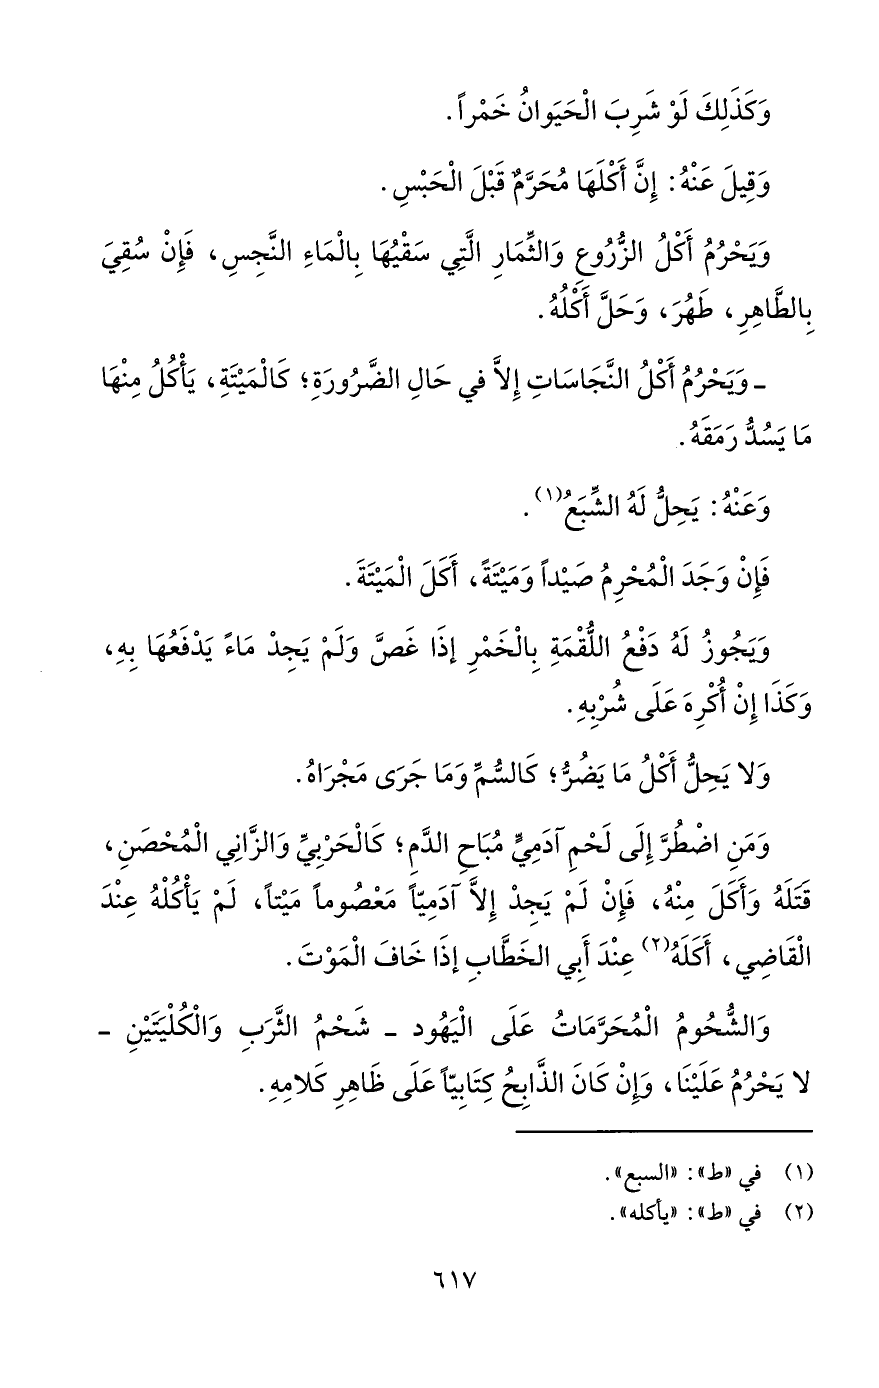 وَكَذَلِكَ لَوْ شَرِبَ الْحَيَوانُ خَمْراً.
وَقِيلَ عَنْهُ: إِنَّ أَكْلَهَا مُحَرَّمٌ قَبْلَ الْحَبْسِ.
وَيَحْرُمُ أَكْلُ الزُّرُوعِ وَالثِّمَارِ الَّتِي سَقْيُهَا بِالْمَاءِ النَّجِسِ، فَإِنْ سُقِيَ
بِالطَّاهِرِ، طَهُرَ، وَحَلَّ أَكْلُهُ.
ـ وَيَحْرُمُ أَكْلُ النَّجَاسَاتِ إِلاَّ في حَالِ الضَّرُورَةِ؛ كَالْمَيْتَةِ، يَأْكُلُ مِنْهَا
مَا يَسُدُّ رَمَقَهُ.
وَعَنْهُ: يَحِلُّ لَهُ الشِّبَعُ(١).
فَإِنْ وَجَدَ الْمُحْرِمُ صَيْداً وَمَيْتَةً، أَكَلَ الْمَيْتَةَ.
وَيَجُوزُ لَهُ دَفْعُ اللُّقْمَةِ بِالْخَمْرِ إِذَا غَصَّ وَلَمْ يَجِدْ مَاءً يَدْفَعُهَا بِهِ،
وَكَذَا إِنْ أُكْرِهَ عَلَى شُرْبِهِ.
وَلا يَحِلُّ أَكْلُ مَا يَضُرُّ؛ كَالسُّمِّ وَمَا جَرَى مَجْرَاهُ.
وَمَنِ اضْطُرَّ إِلَى لَحْمِ آدَمِيٍّ مُبَاحِ الدَّمِ؛ كَالْحَرْبِيِّ وَالزَّانِي الْمُحْصَنِ،
قَتَلَهُ وَأَكَلَ مِنْهُ، فَإِنْ لَمْ يَجِدْ إِلاَّ آدَمِيّاً مَعْصُوماً مَيْتاً، لَمْ يَأْكُلْهُ عِنْدَ
الْقَاضِي، أَكَلَهُ(٢) عِنْدَ أَبِي الخَطَّابِ إِذَا خَافَ الْمَوْتَ.
وَالشُّحُومُ الْمُحَرَّمَاتُ عَلَى الْيَهُود ـ شَحْمُ الثَّرَبِ وَالْكُلْيَتَيْنِ ـ
لا يَحْرُمُ عَلَيْنَا، وَإِنْ كَانَ الذَّابِحُ كِتَابِيّاً عَلَى ظَاهِرِ كَلامِهِ.
(١) في «ط»: «السبع».
(٢) في «ط»: «يأكله».
٦١٧